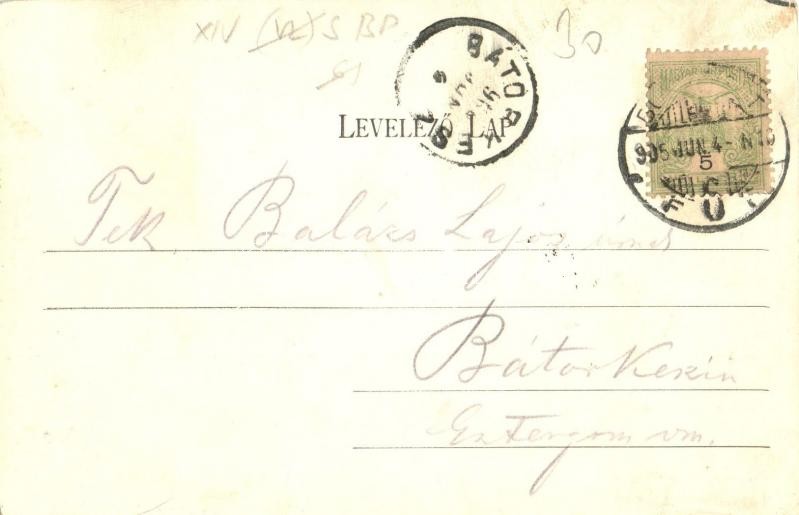 XIV S BP
30
BÁTORKESZ
MAGYAR KIR. POSTA
905 JUN. 4 - N 10
5
LEVELEZŐ LAP
Tek. Balázs Lajos úrnak
Bátorkeszin
Esztergom vm.